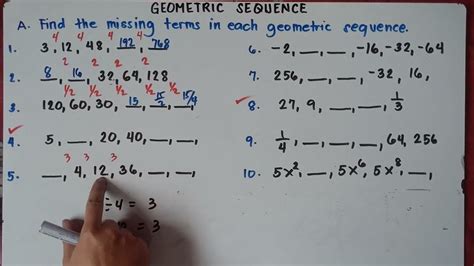 GEOMETRIC SEQUENCE
A. Find the missing terms in each geometric sequence.
4 4 4 4
1. 3, 12, 48, 192, 768
2 2 2 2
2. 8, 16, 32, 64, 128
1/2 1/2 1/2 1/2 1/2
3. 120, 60, 30, 15, 15/2, 15/4
✓
4. 5, __, 20, 40, __, __,
3 3 3
5. __, 4, 12, 36, __, __,
÷4 = 3
= 3
6. -2, __, __, -16, -32, -64
7. 256, __, __, -32, 16,
✓ 8. 27, 9, __, __, 1/3
9. 1/4, __, __, __, 64, 256
10. 5x², __, 5x⁶, 5x⁸, __,